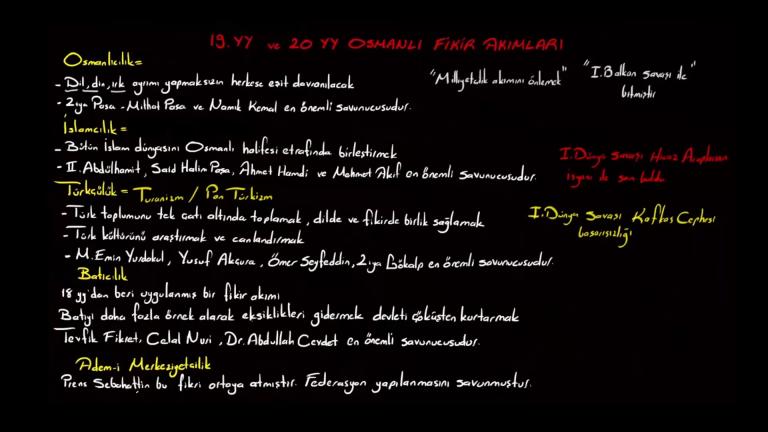 19.YY ve 20 YY OSMANLI FİKİR AKIMLARI
Osmanlıcılık=
- Dil, din, ırk ayrımı yapmaksızın herkese eşit davranılacak
- Ziya Paşa - Mithat Paşa ve Namık Kemal en önemli savunucusudur.
"Milliyetçilik akımını önlemek"
"I.Balkan savaşı ile"
bitmiştir
İslamcılık=
- Bütün İslam dünyasını Osmanlı halifesi etrafında birleştirmek
- II. Abdülhamit, Said Halim Paşa, Ahmet Hamdi ve Mehmet Akif en önemli savunucusudur.
I.Dünya savaşı Hicaz Arapların
isyanı ile son buldu
Türkçülük = Turanizm / Pan Türkizm
- Türk toplumunu tek çatı altında toplamak, dilde ve fikirde birlik sağlamak
- Türk kültürünü araştırmak ve canlandırmak
- M.Emin Yurdakul, Yusuf Akçura, Ömer Seyfeddin, Ziya Gökalp en önemli savunucusudur.
I.Dünya Savaşı Kafkas Cephesi
başarısızlığı
Batıcılık
18 yy'dan beri uygulanmış bir fikir akımı
Batıyı daha fazla örnek alarak eksiklikleri gidermek devleti çöküşten kurtarmak
Tevfik Fikret, Celal Nuri, Dr. Abdullah Cevdet en önemli savunucusudur.
Adem-i Merkeziyetcilik
Prens Sebahattin bu fikri ortaya atmıştır. Federasyon yapılanmasını savunmuştur.